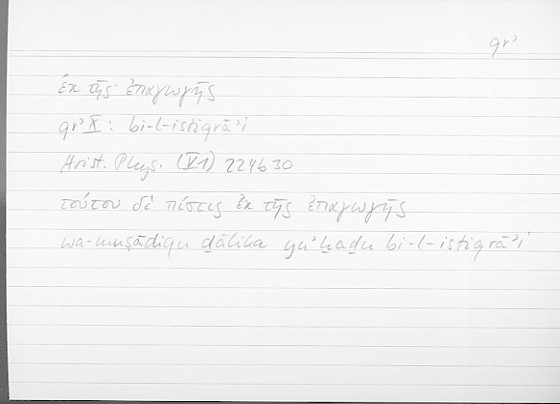 qrʾ
ἐκ τῆς ἐπαγωγῆς
qrʾ X : bi-l-istiqrāʾi
Arist. Phys. (V 1) 224b30
τούτου δὲ πίστις ἐκ τῆς ἐπαγωγῆς
wa-muṣādiqu ḏālika yuʾḫaḏu bi-l-istiqrāʾi